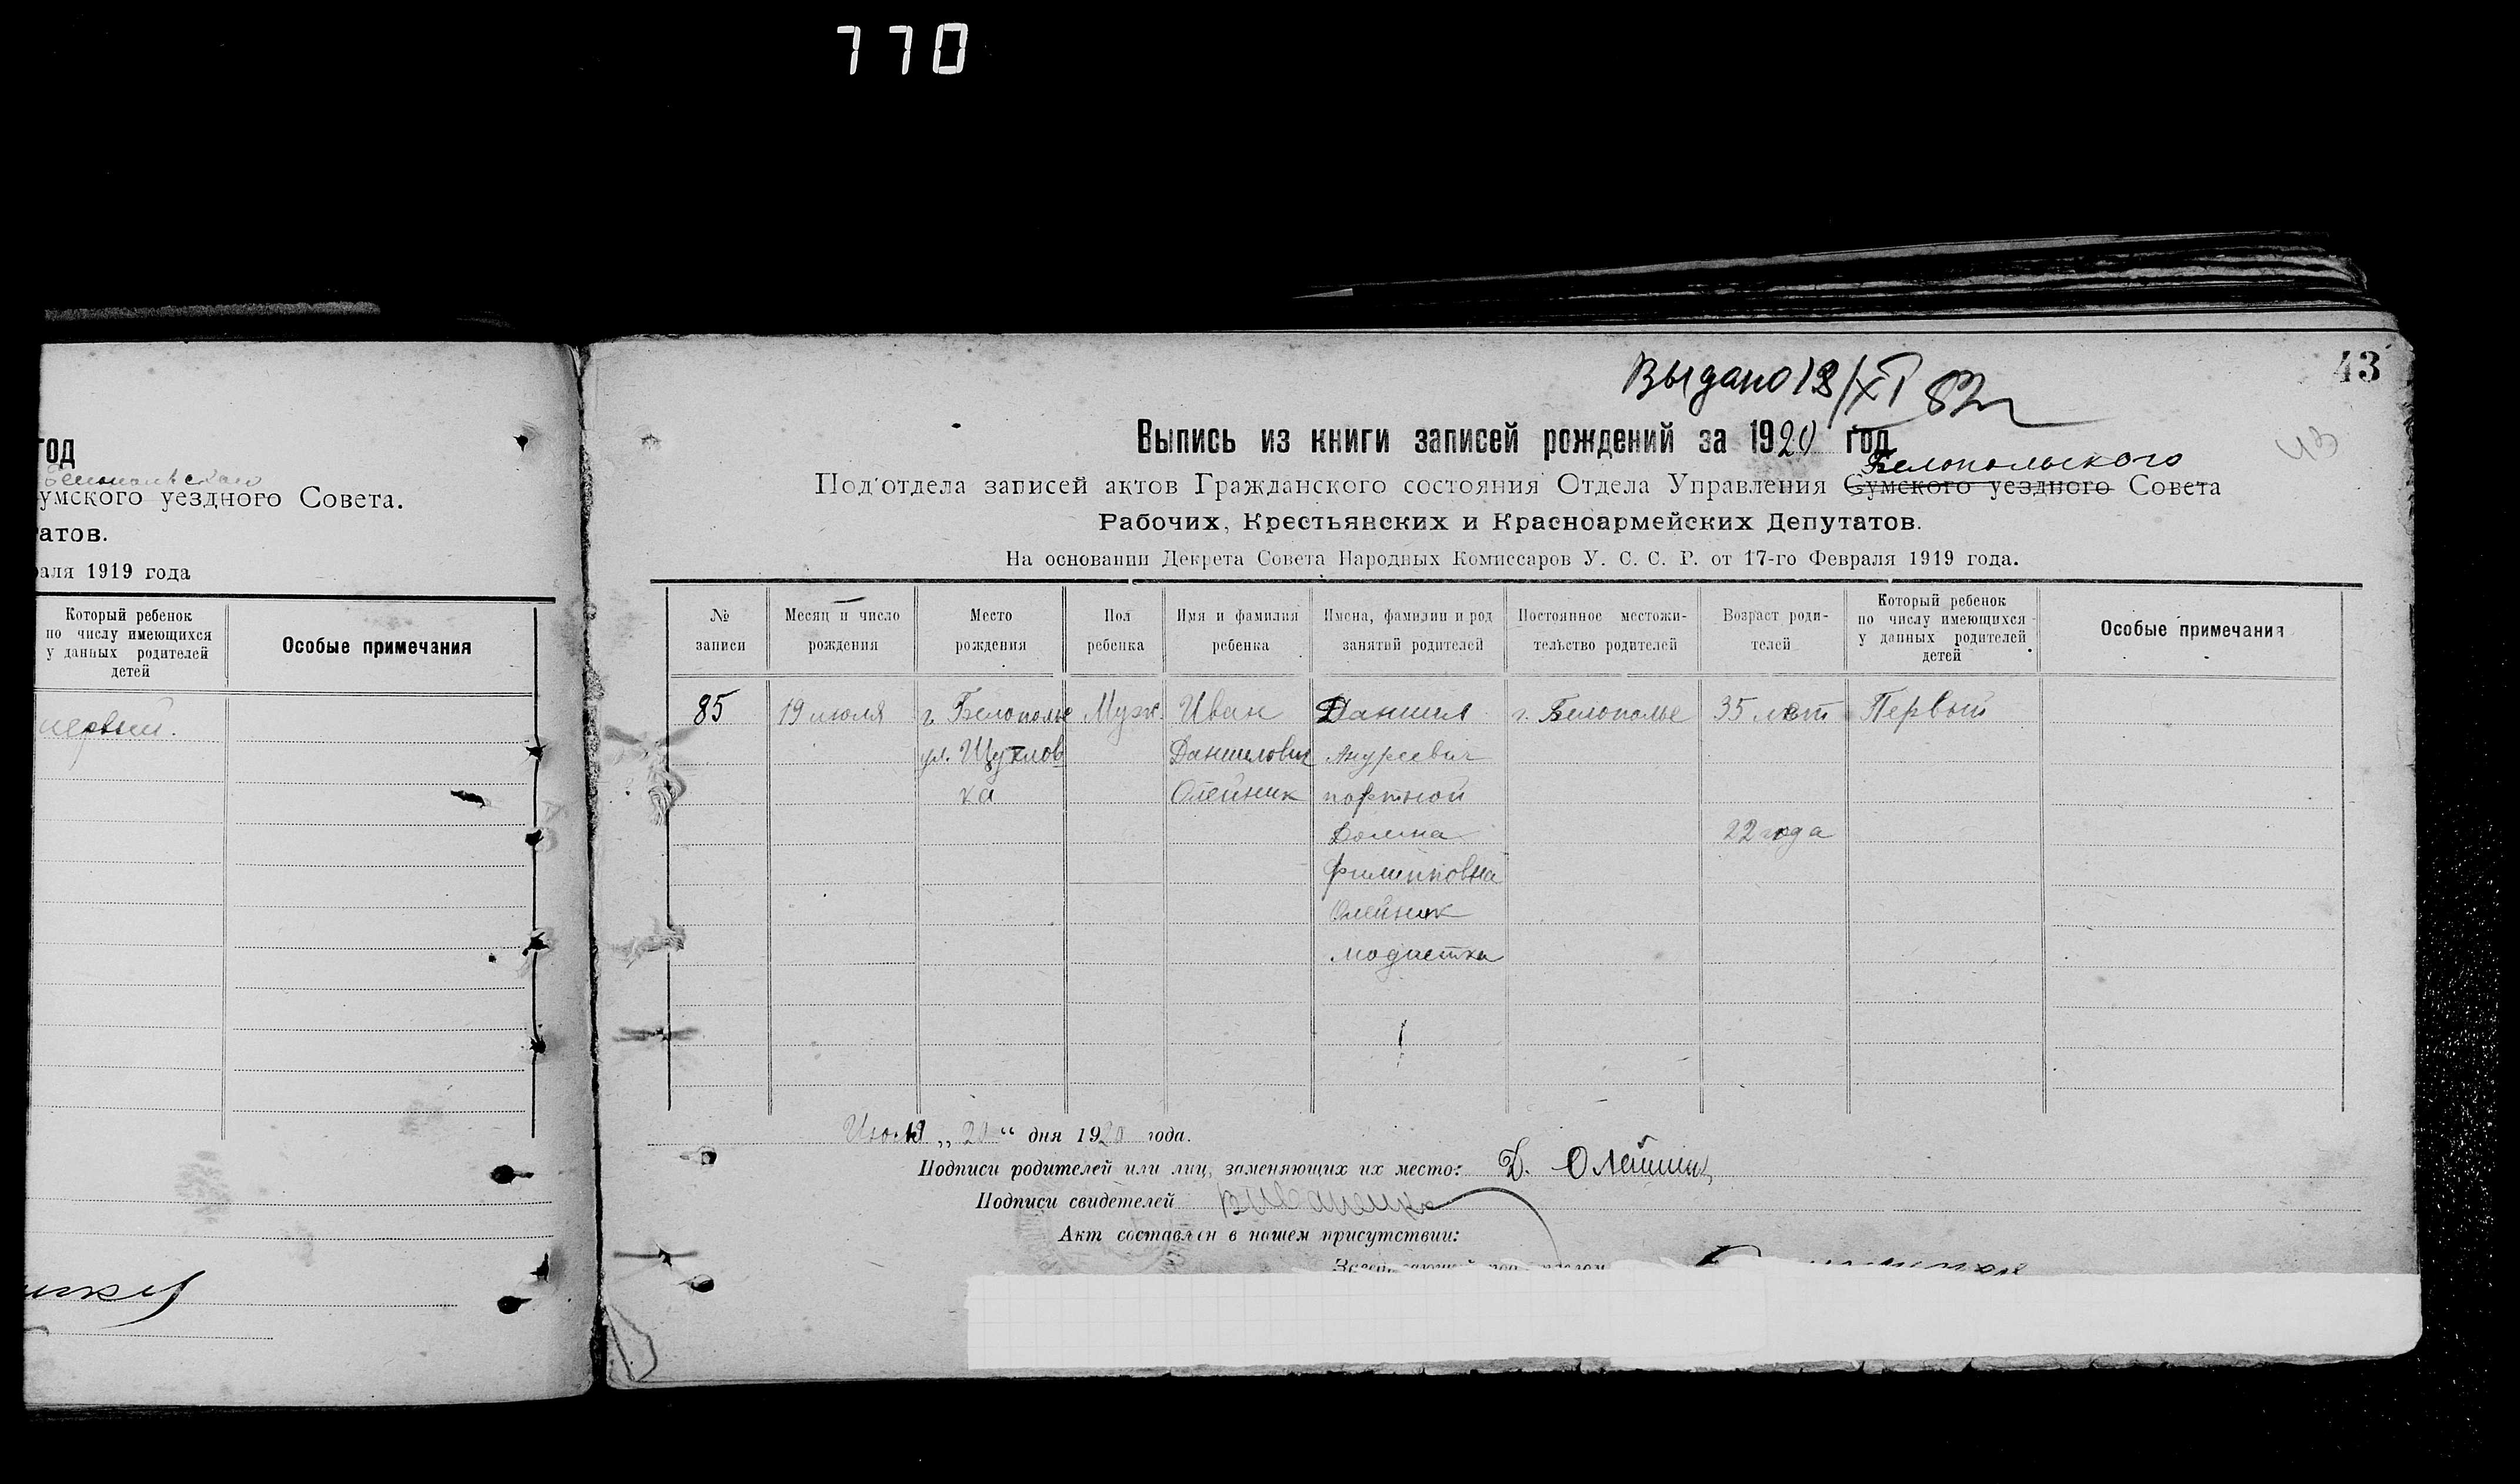 770
год
умского уездного Совета.
атов.
аля 1919 года
Который ребенок
по числу имеющихся
у данных родителей
детей
Особые примечания
первый.
43
Выдано 18/XI 82
43
Выпись из книги записей рождений за 1920 год
Белопольского
Под'отдела записей актов Гражданского состояния Отдела Управления Сумского уездного Совета
Рабочих, Крестьянских и Красноармейских Депутатов.
На основании Декрета Совета Народных Комиссаров У. С. С. Р. от 17-го Февраля 1919 года.
№
записи
Месяц и число
рождения
Место
рождения
Пол
ребенка
Имя и фамилия
ребенка
Имена, фамилии и род
занятий родителей
Постоянное местожи-
тельство родителей
Возраст роди-
телей
Который ребенок
по числу имеющихся
у данных родителей
детей
Особые примечания
85
19 июля
г. Белополье
ул.
ка
Муж.
Иван
Данилович
Олейник
Даниил
портной
Домна
Филипповна
Олейник
модистка
г. Белополье
35 лет
22 года
Первый
Июля „ 20 “ дня 1920 года.
Подписи родителей или лиц, заменяющих их место: Д. Олейник
Подписи свидетелей
Акт составлен в нашем присутствии: